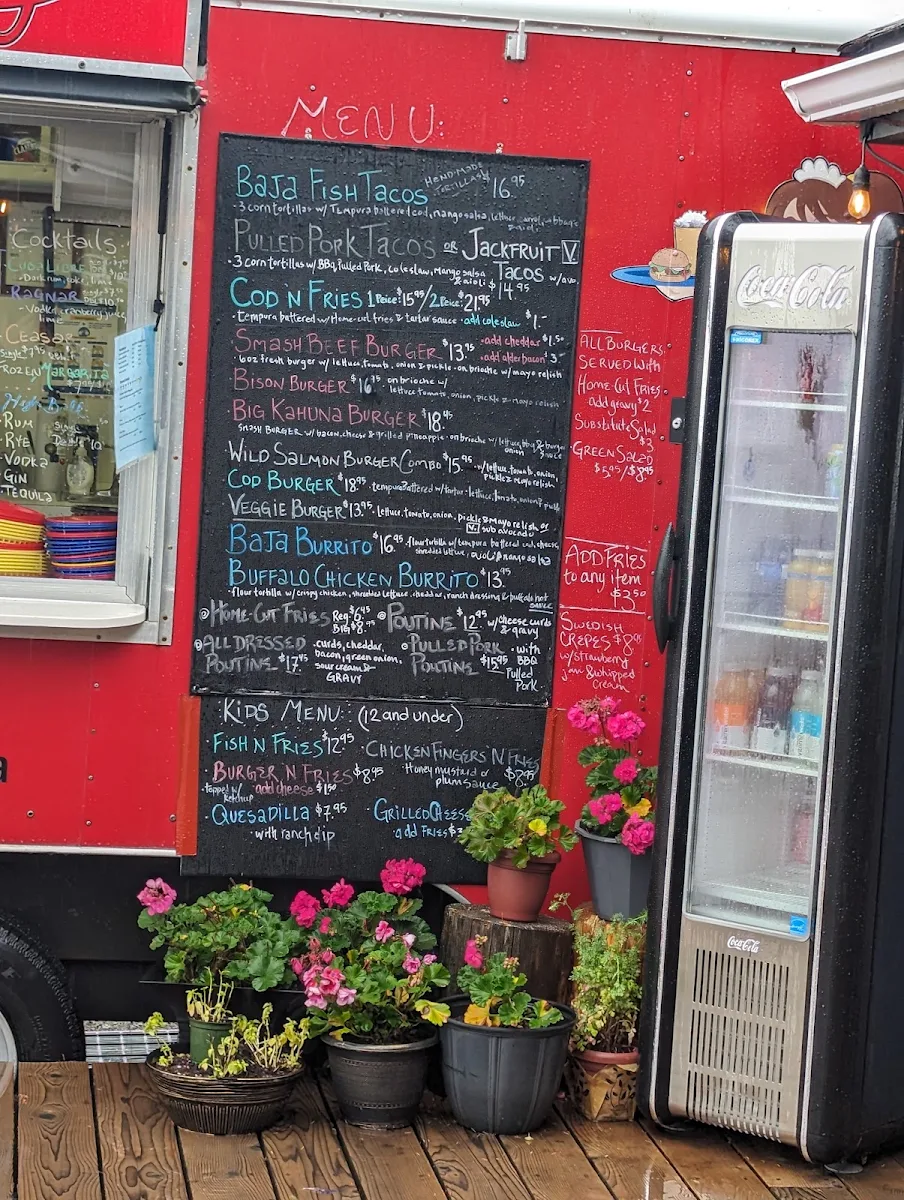 MENU:
BAJA FISH TACOS HAND-MADE TORTILLAS 16.95
·3 corn tortillas w/ Tempura battered cod, mango salsa, lettuce
PULLED PORK TACOS OR JACKFRUIT V TACOS
·3 corn tortillas w/ BBQ, Pulled Pork, coleslaw, Mango salsa & aioli $14.95 w/avo.
COD N FRIES 1 Peice: $15.95/2 Peice: 21.95
·tempura battered w/ Home-cut fries & tartar sauce ·add coleslaw $1.-
SMASH BEEF BURGER $13.95 ·add cheddar $1.50
·add alder bacon $3
·6oz fresh burger w/ lettuce, tomato, onion & pickle - on brioche w/ mayo relish
BISON BURGER $16.95 on brioche w/
lettuce tomato, onion, pickle & mayo relish
BIG KAHUNA BURGER $18.95
SMASH BURGER w/ bacon, cheese & grilled pineapple · on brioche w/ lettuce, bbq & burger sauce
WILD SALMON BURGER COMBO $15.95 ·w/ lettuce, tomato, onion
pickle & mayo relish
COD BURGER $18.95 ·tempura battered w/ tartar · lettuce, tomato, onion & pickle
VEGGIE BURGER $13.95 ·lettuce, tomato, onion, pickle & mayo relish or
V. sub avocado
BAJA BURRITO $16.95 flour tortilla w/ tempura battered cod, cheese,
shredded lettuce, aioli & mango salsa
BUFFALO CHICKEN BURRITO $13.95
flour tortilla w/ crispy chicken, shredded lettuce, cheddar, ranch dressing & buffalo hot sauce
HOME-CUT FRIES Reg $6.95
BIG $8.95
POUTINE $12.95 w/ cheese curds & gravy
ALL DRESSED POUTINE $17.95 ·curds, cheddar,
bacon, green onion,
sour cream &
GRAVY
PULLED PORK POUTINE $15.95 ·with
BBQ
Pulled
Pork
KIDS MENU: (12 and under)
FISH N FRIES $12.95
·CHICKEN FINGERS 'N FRIES
Honey mustard or plum sauce $8.95
BURGER 'N FRIES $8.95
topped w/ ketchup add cheese $1.50
·QUESADILLA $7.95
·with ranch dip
GRILLED CHEESE
add FRIES $3
ALL BURGERS
SERVED with
Home Cut FRIES
add gravy $2
Substitute Salad
$3
·GREEN SALAD
$5.95/$8.95
ADD FRIES
to any item
$3.50
SWEDISH
CREPES $8.95
w/ strawberry
jam & whipped
Cream
Cocktails
CUBA LIBRE
·Dark rum, coke, lime
RAGNAR
·Vodka cranberry juice
lime
CEASAR
FROZEN MARGARITA
High Balls
·RUM
·RYE
·VODKA
·GIN
·TEQUILA
Single
Double
Coca-Cola
Coca-Cola